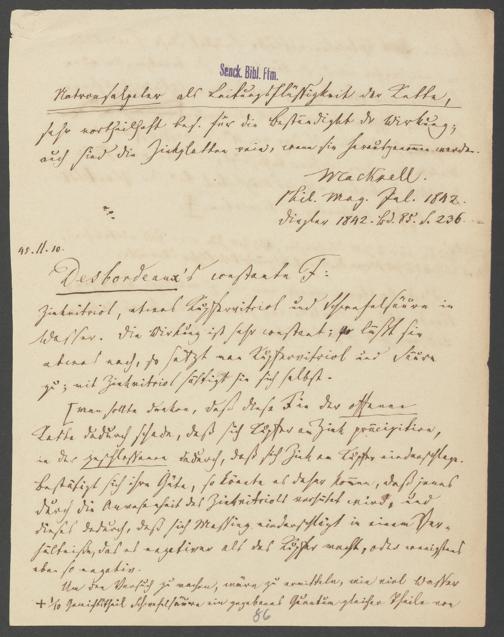 Senck. Bibl. Ffm.
Natronsalpeter als Leitungsflüssigkeit der Kette,
sehr vortheilhaft bes. für die Beständigkt der Wirkung;
auch sind die Zinkplatten rein, wenn sie herausgenommen werden.
Mackrell.
Phil. Mag. Jul. 1842.
Dingler 1842. Bd. 85. S. 236.
45. 11. 10.
Desbordeaux's constante F:
Zinkvitriol, etwas Kupfervitriol und Schwefelsäure in
Wasser. Die Wirkung ist sehr constant; läßt sie
etwas nach, so setzt man Kupfervitriol und Säure
zu; mit Zinkvitriol sättigt sie sich selbst.
[man sollte denken, daß diese F in der offenen
Kette dadurch schade, daß sich Kupfer an Zink präcipitire,
in der geschlossenen dadurch, daß sich Zink am Kupfer niederschlage.
Bestätigt sich ihre Güte, so könnte es daher kommen, daß jenes
durch die Anwesenheit des Zinkvitriols verhütet wird, und
dieses dadurch, daß sich Messing niederschlägt in einem Ver-
hältniße, das es negativer als das Kupfer macht, oder wenigstens
eben so negativ.
Um den Versuch zu machen, wäre zu ermitteln, wie viel Wasser
+ 1/10 Gewichtstheil Schwefelsäure ein gegebenes Quantum gleicher Theile von
86